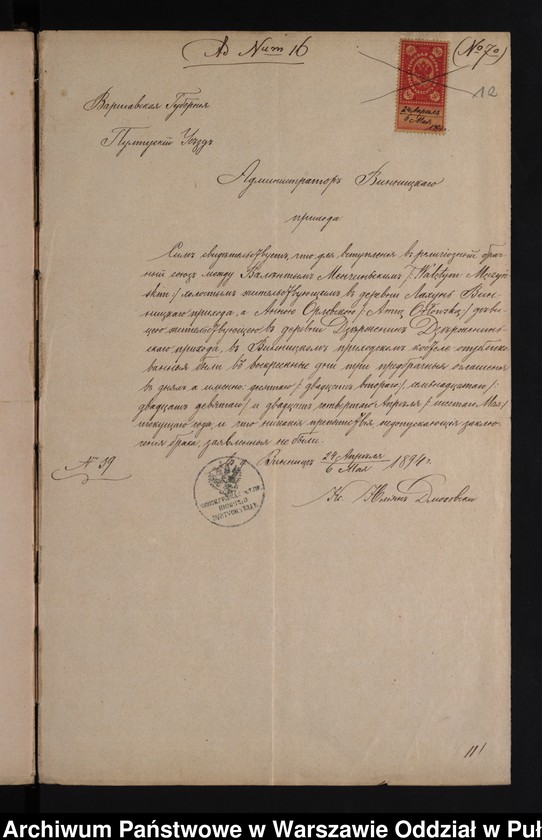 Ad Num 16
(No 70)
12
24 Апреля
6 Мая
Варшавская Губернія
Пултускій Уѣздъ
Администраторъ Винницкаго
прихода
Симъ свидѣтельствуетъ, что для вступленія въ религіозный брач
ный союзъ между Валентымъ Менчинскимъ /Walentym
/ холостымъ жительствующимъ въ деревни Вин
ницкаго прихода, а Анною Орловскою / Anną Orłowską / дѣви
цою жительствующею въ деревни
скаго прихода, въ Винницкомъ приходскомъ костелѣ опублико
ванныя были въ воскресные дни три предбрачныя оглашенія
въ дняхъ а именно: десятаго / двадцать втораго /, семнадцатаго /
двадцать девятаго / и двадцать четвертаго Апрѣля / шестаго Мая /
текущаго года и что никакія препятствія недопускающія заклю
ченія брака, заявлены не были.
Винница 24 Апреля
6 Мая 1894 г.
№ 39
Кс. Юліянъ
111
Archiwum Państwowe w Warszawie Oddział w Puł